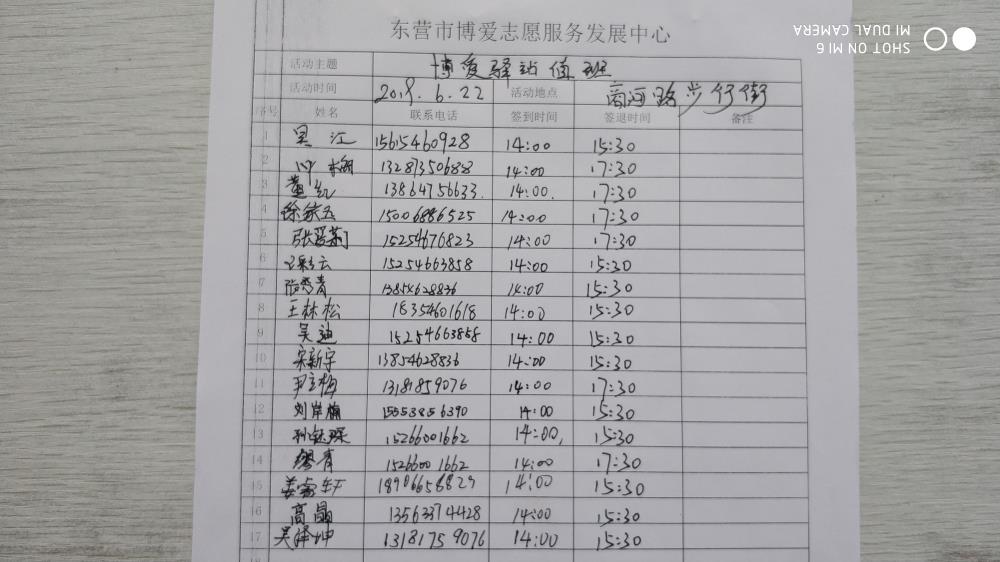 东营市博爱志愿服务发展中心
活动主题 博爱驿站值班
活动时间 2019.6.22 活动地点 商河路步行街
序号 姓名 联系电话 签到时间 签退时间 备注
1 江 15615460928 14:00 15:30
2 梅 13287350688 14:00 17:30
3 董红 13864756633. 14:00. 17:30
4 徐家玉 15006886525 14:00 17:30
5 张爱菊 15254676823 14:00 17:30
6 彩云 15254663858 14:00 15:30
7 张秀青 13854628836 14:00 15:30
8 王林松 18354601618 14:00 15:30
9 吴迪 15254663858 14:00 15:30
10 宋新宇 13854628836 14:00 15:30
11 尹立梅 13181859076 14:00 17:30
12 刘岸楠 15553856390 14:00 15:30
13 15266001662 14:00, 15:30
14 缪青 15266001662 14:00 17:30
15 姜 轩 18906656829 14:00 15:30
16 高晶 13562374428 14:00 15:30
17 吴泽坤 13181759076 14:00 15:30
SHOT ON MI 6
MI DUAL CAMERA